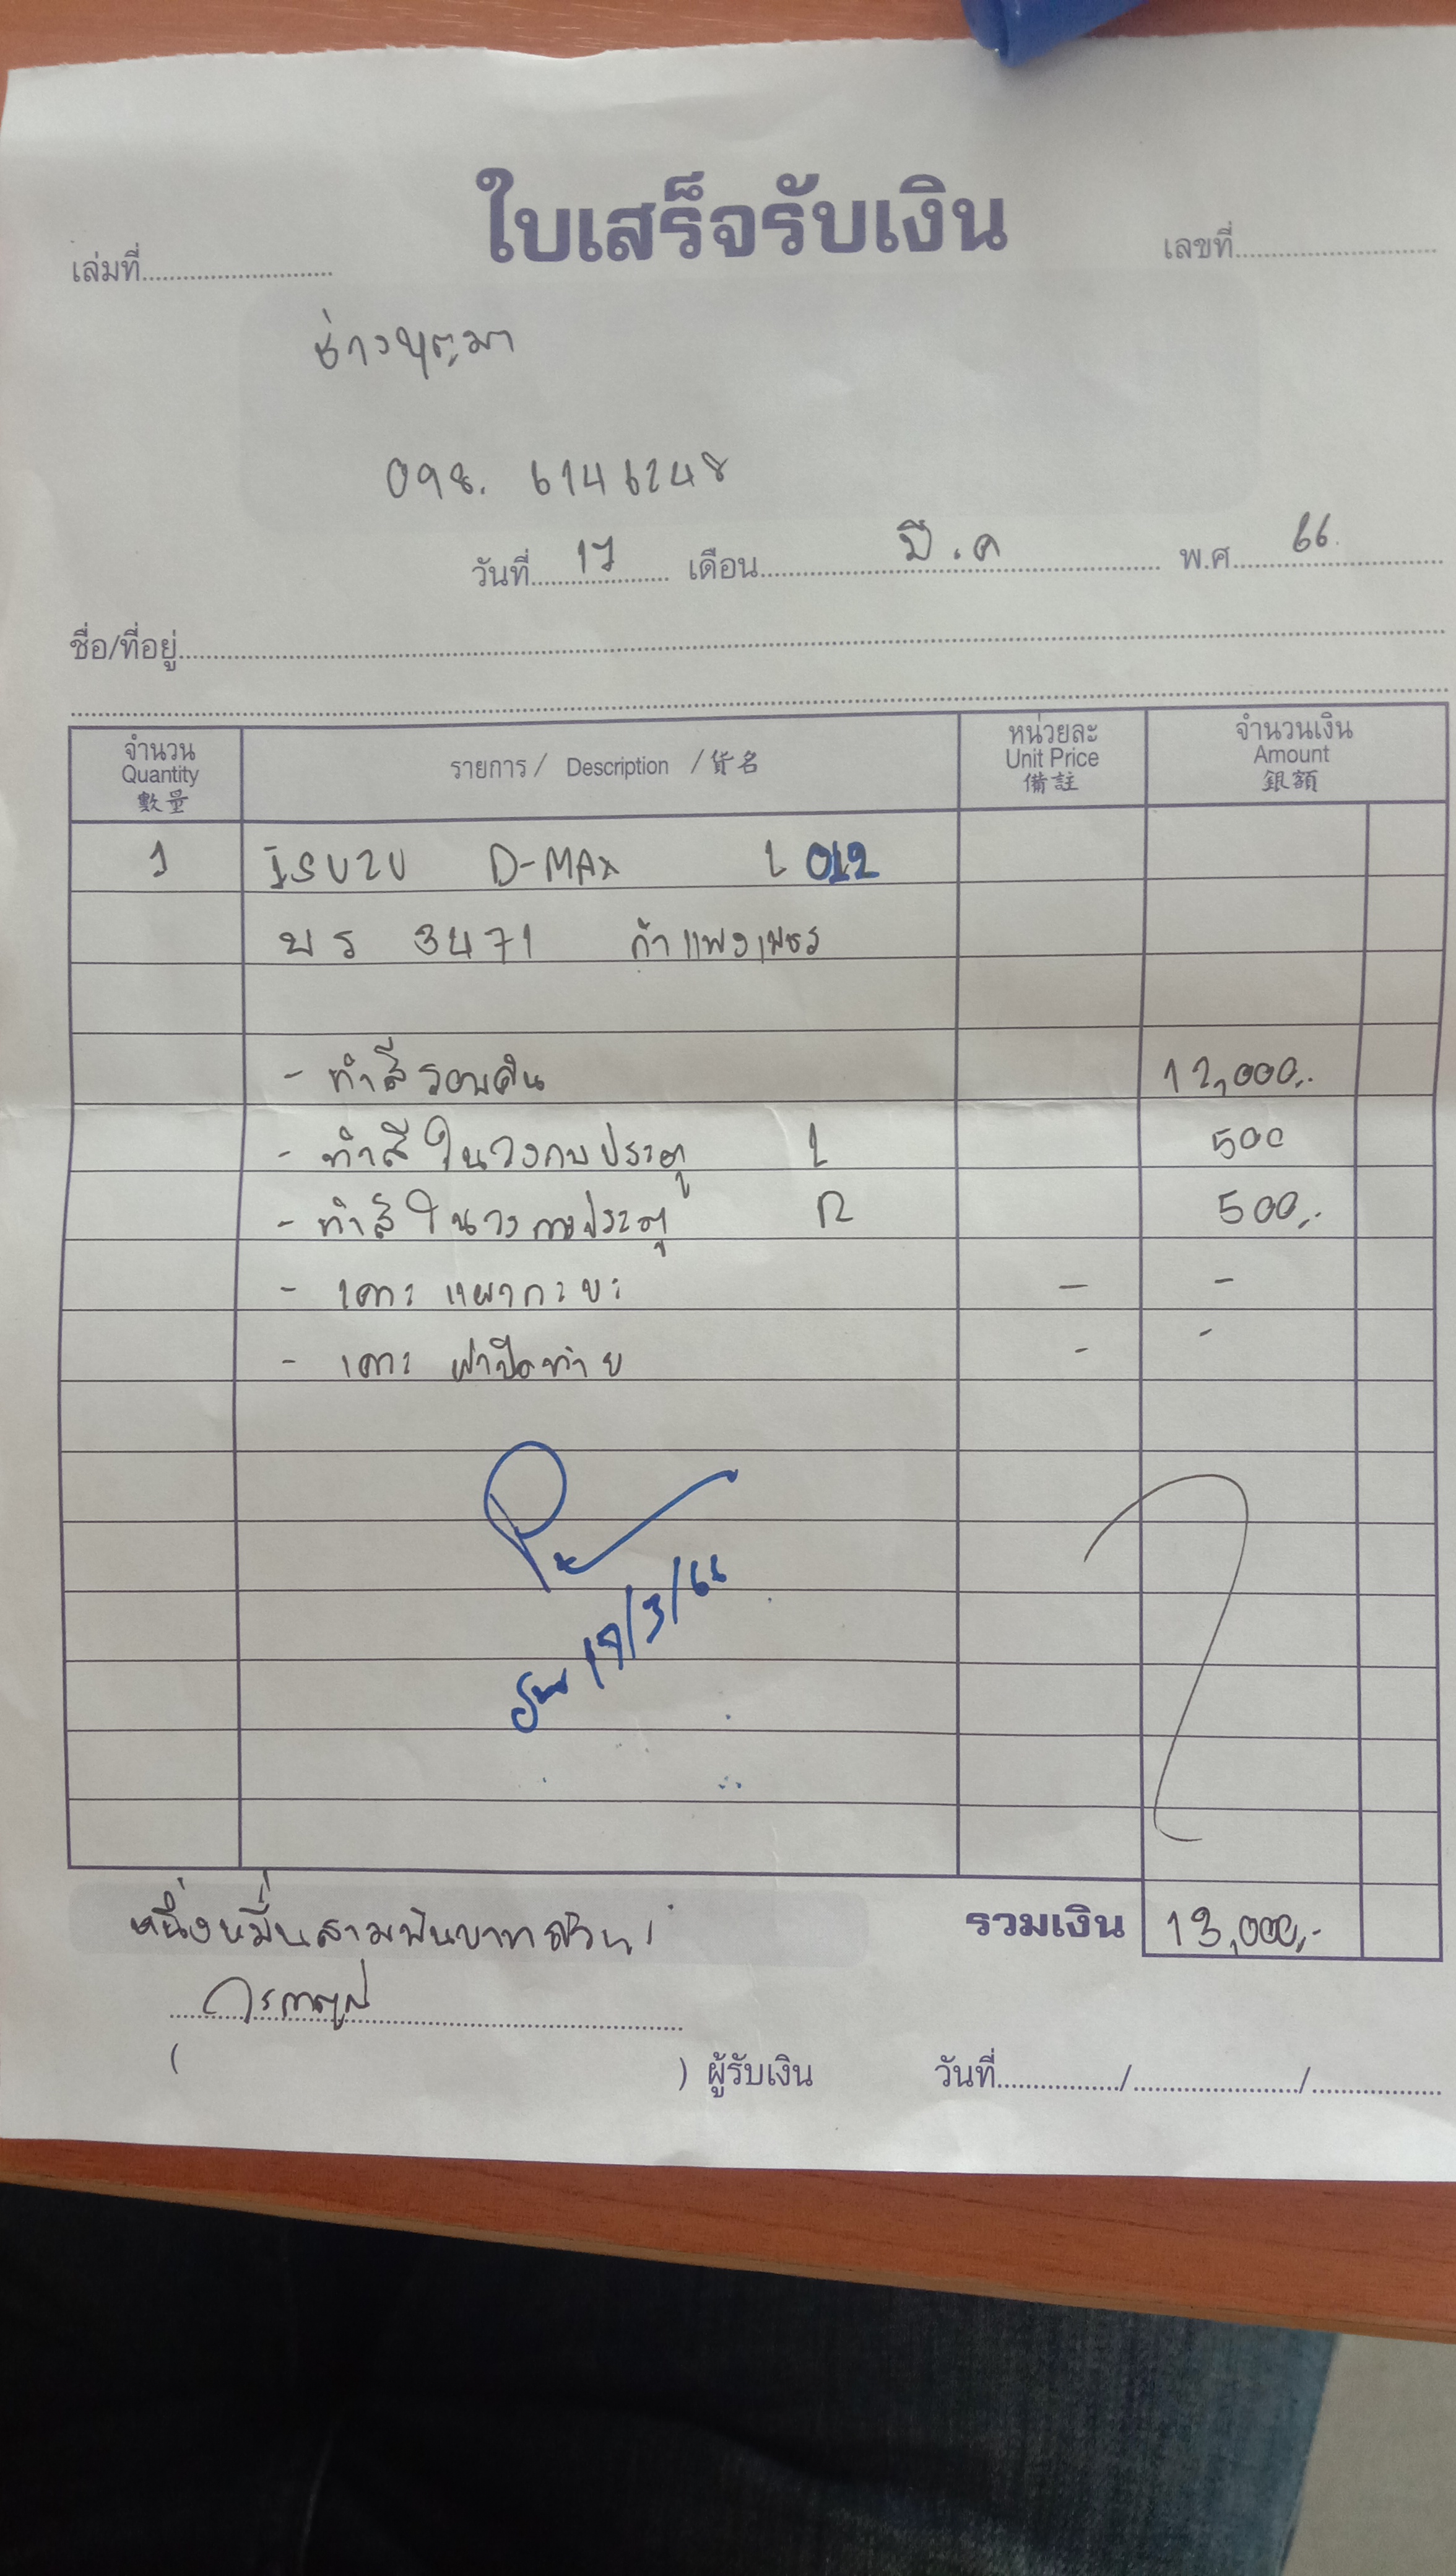 ใบเสร็จรับเงิน
เล่มที่ เลขที่
098. 6146248
วันที่ 17 เดือน มี.ค พ.ศ. 66
ชื่อ/ที่อยู่
จำนวน Quantity 數量 รายการ / Description / 貨名 หน่วยละ Unit Price 備註 จำนวนเงิน Amount 銀額
1 ISUZU D-MAX 2012
บร 3471 กำแพงเพชร
- ทำสีรอบคัน 12,000.-
- ทำสีในวงกบประตู L 500
- ทำสีในวงกบประตู R 500.-
- เคาะ แผงกะบะ - -
- เคาะ ฝาปิดท้าย - -
17/3/66
หนึ่งหมื่นสามพันบาทถ้วน รวมเงิน 13,000.-
( ) ผู้รับเงิน วันที่ / /